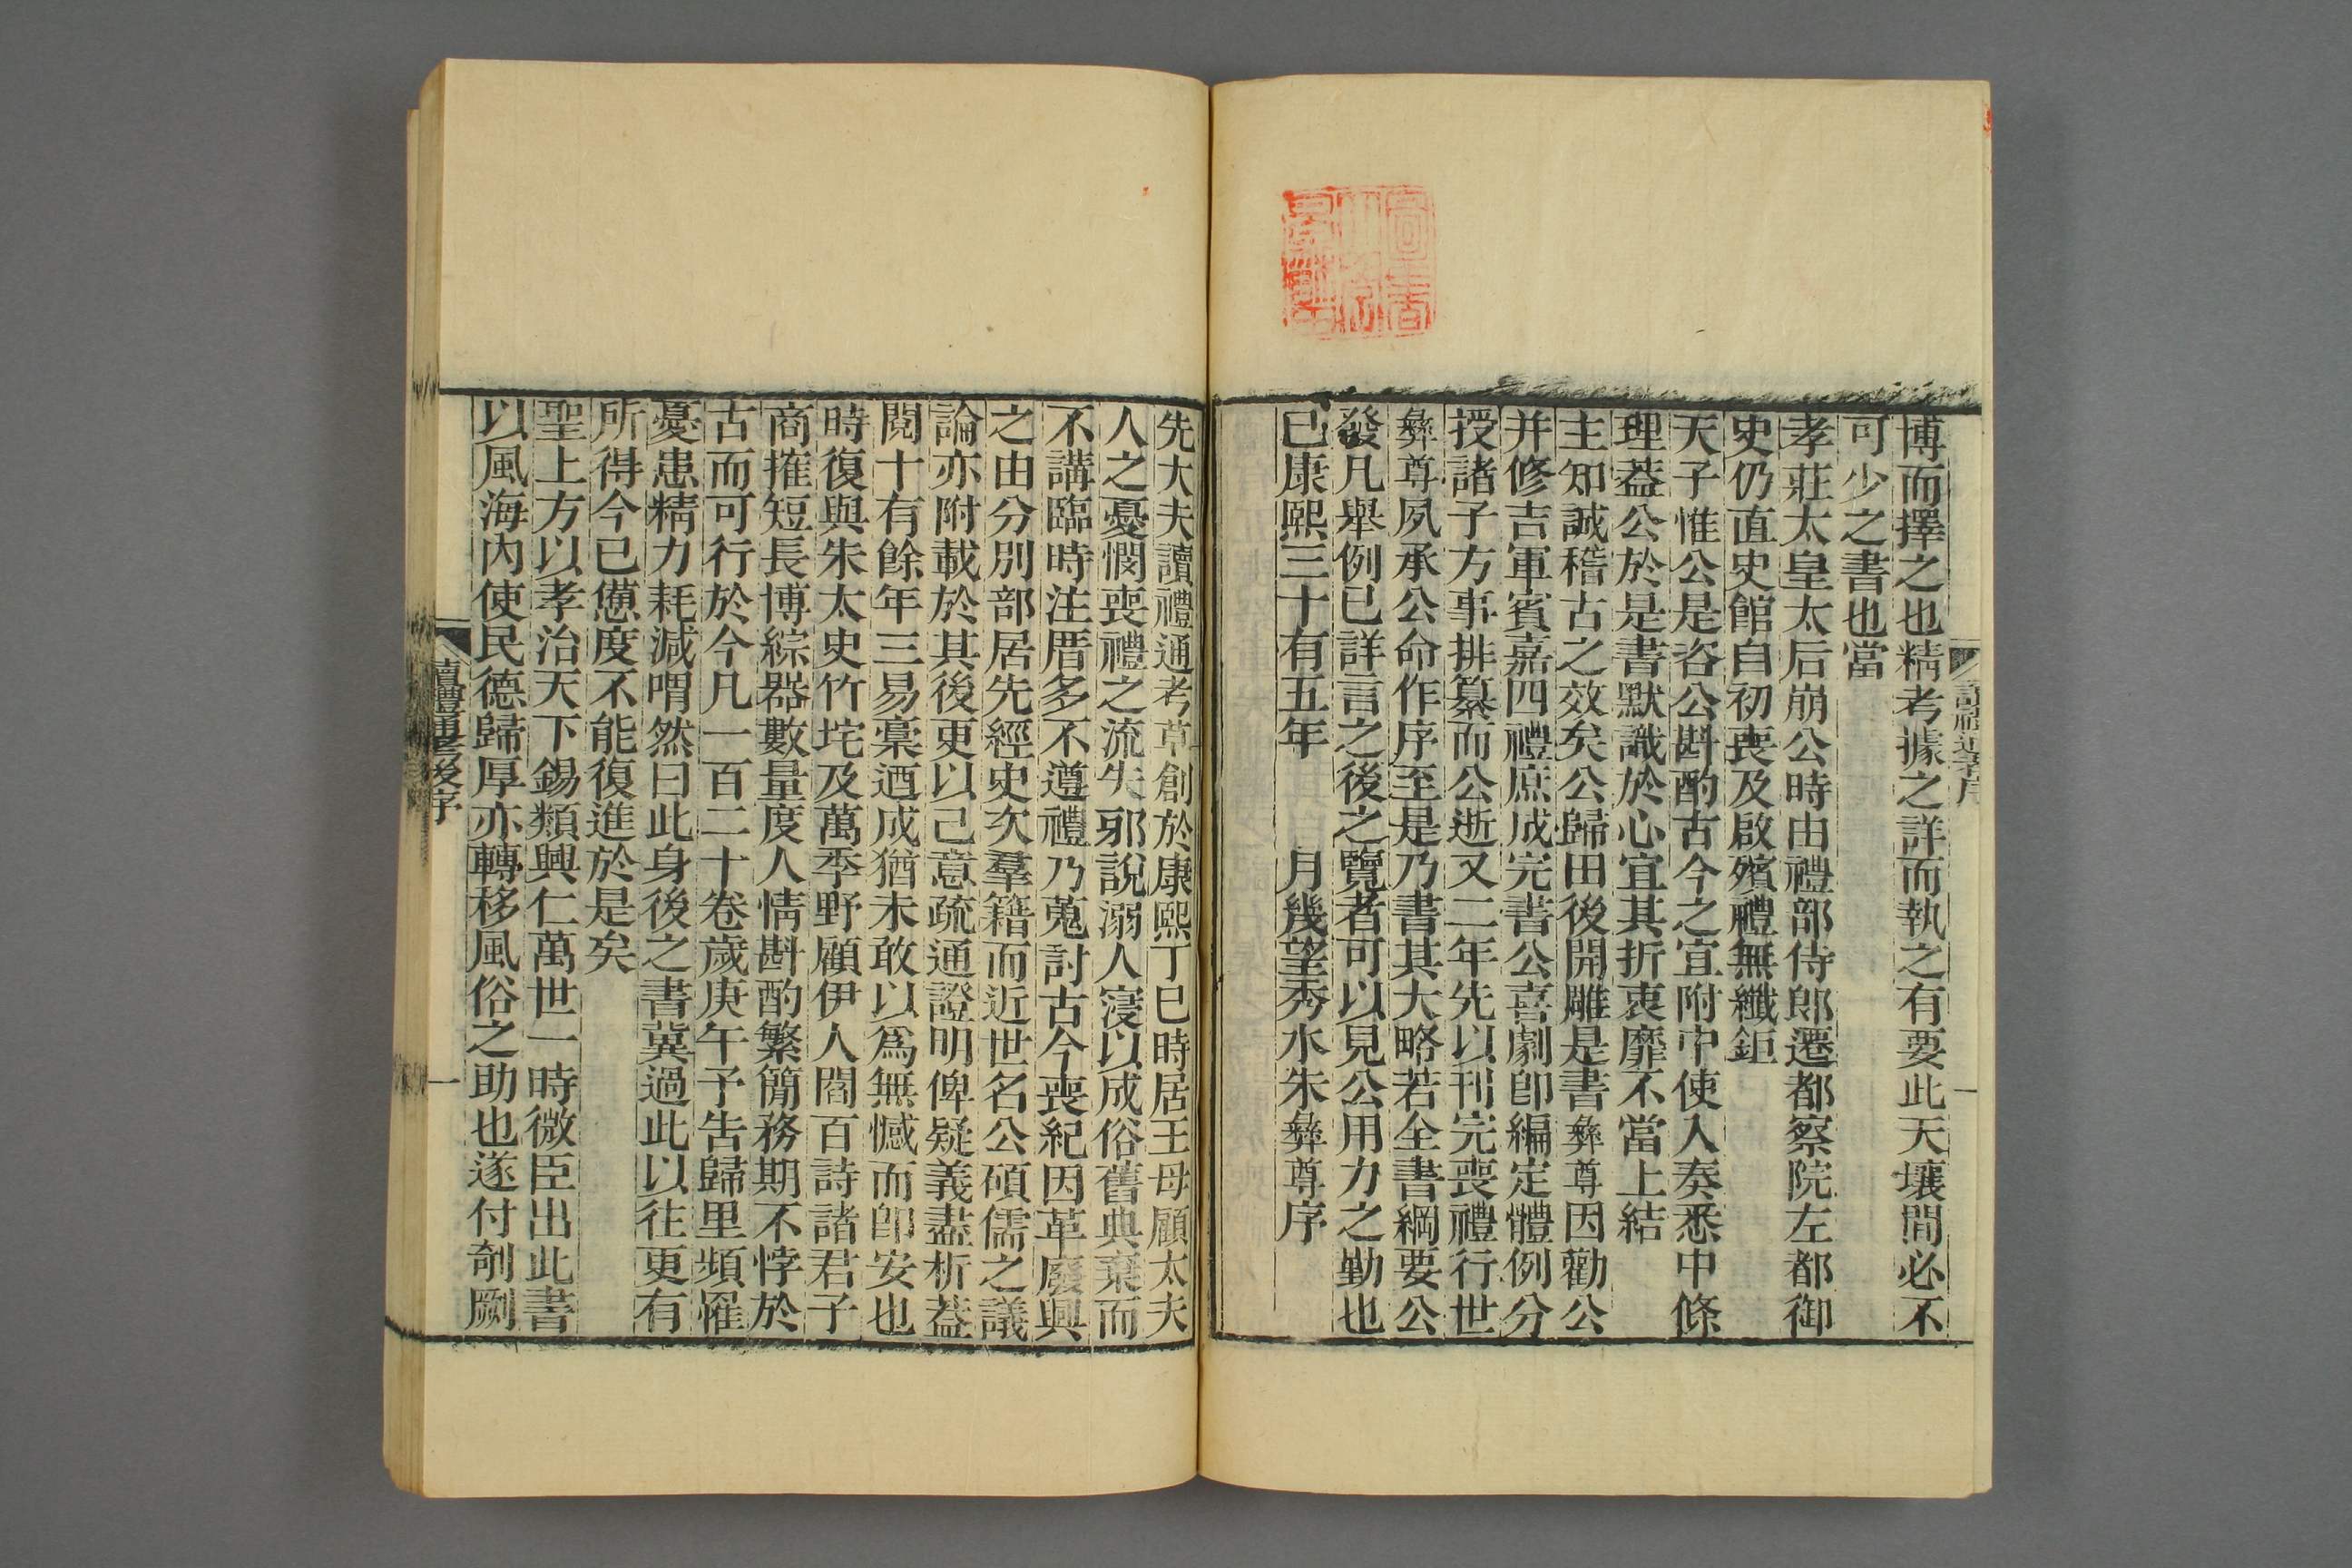 博而擇之也精考據之詳而執之有要此天壤間必不
可少之書也當
孝莊太皇太后崩公時由禮部侍郎遷都察院左都御
史仍直史館自初喪及啟殯禮無纖鉅
天子惟公是咨公斟酌古今之宜附中使入奏悉中條
理葢公於是書默識於心宜其折衷靡不當上結
主知誠稽古之效矣公歸田後開雕是書彝尊因勸公
并修吉軍賓嘉四禮庶成完書公喜劇卽編定體例分
授諸子方事排纂而公逝又二年先以刊完喪禮行世
彝尊夙承公命作序至是乃書其大略若全書綱要公
發凡舉例已詳言之後之覽者可以見公用力之勤也
已康熙三十有五年 月幾望秀水朱彝尊序
先大夫讀禮通考草創於康熙丁巳時居王母顧太夫
人之憂憫喪禮之流失邪說溺人寖以成俗舊典棄而
不講臨時注厝多不遵禮乃蒐討古今喪紀因革廢興
之由分別部居先經史次羣籍而近世名公碩儒之議
論亦附載於其後更以己意疏通證明俾疑義盡析葢
閱十有餘年三易稾迺成猶未敢以爲無憾而卽安也
時復與朱太史竹垞及萬季野顧伊人閻百詩諸君子
商搉短長博綜器數量度人情斟酌繁簡務期不悖於
古而可行於今凡一百二十卷歲庚午予告歸里頻罹
憂患精力耗減喟然曰此身後之書冀過此以往更有
所得今已憊度不能復進於是矣
聖上方以孝治天下錫類興仁萬世一時微臣出此書
以風海內使民德歸厚亦轉移風俗之助也遂付剞劂
讀禮通考後序
一